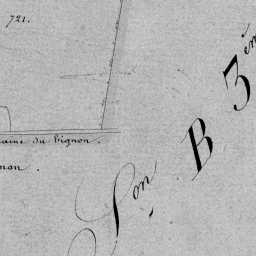 721.
du Vignon.
non.
Son B 3ème